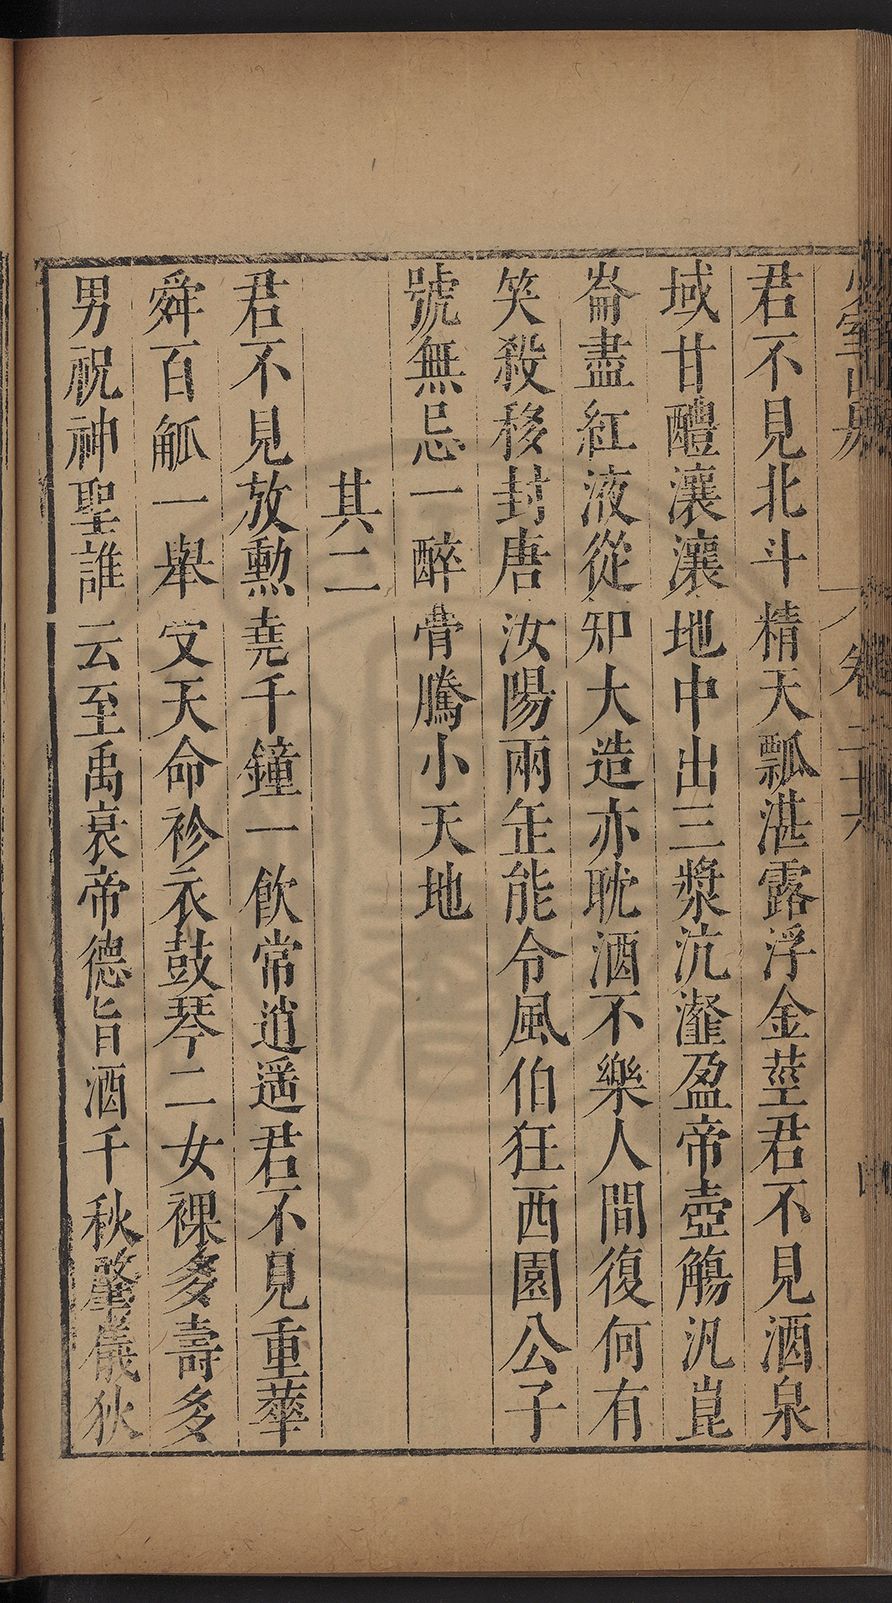 君不見北斗精天瓢湛露浮金莖君不見酒泉
域甘醴瀼瀼地中出三漿沆瀣盈帝壺觴汎崑
崙盡紅液從知大造亦耽酒不樂人間復何有
笑殺移封唐汝陽兩年能令風伯狂西園公子
號無忌一醉骨騰小天地
其二
君不見放勳堯千鐘一飲常逍遥君不見重華
舜百觚一舉受天命袗衣鼓琴二女祼多壽多
男祝神聖誰云至禹衰帝德旨酒千秋儀狄
卷二十六